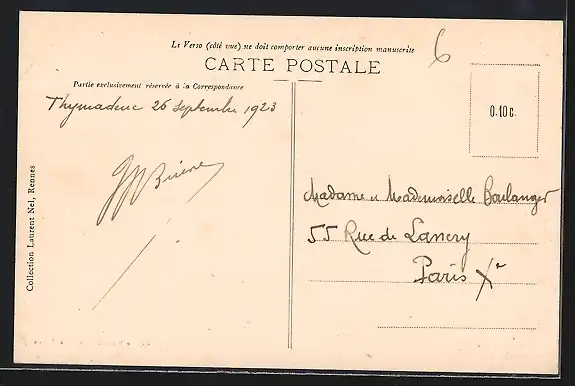 Le Verso (côté vue) ne doit comporter aucune inscription manuscrite
CARTE POSTALE
6
0.10 c.
Partie exclusivement réservée à la Correspondance
Thymadeuc 26 septembre 1923
Collection Laurent Nel, Rennes
Madame et Mademoiselle Boulanger
55 Rue de Lancry
Paris Xe